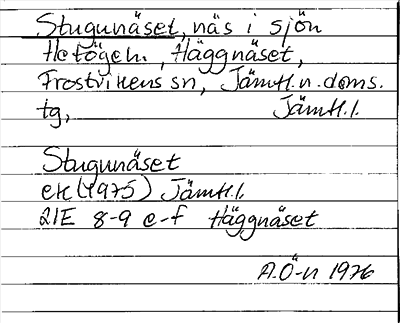 Stugunäset, näs i sjön
Hetögeln, Häggnäset,
Frostvikens sn, Jämtl. n. doms.
tg, Jämtl. l.
Stugunäset
ek (1975) Jämtl. l.
21E 8-9 e-f Häggnäset
A.Ö-n 1976